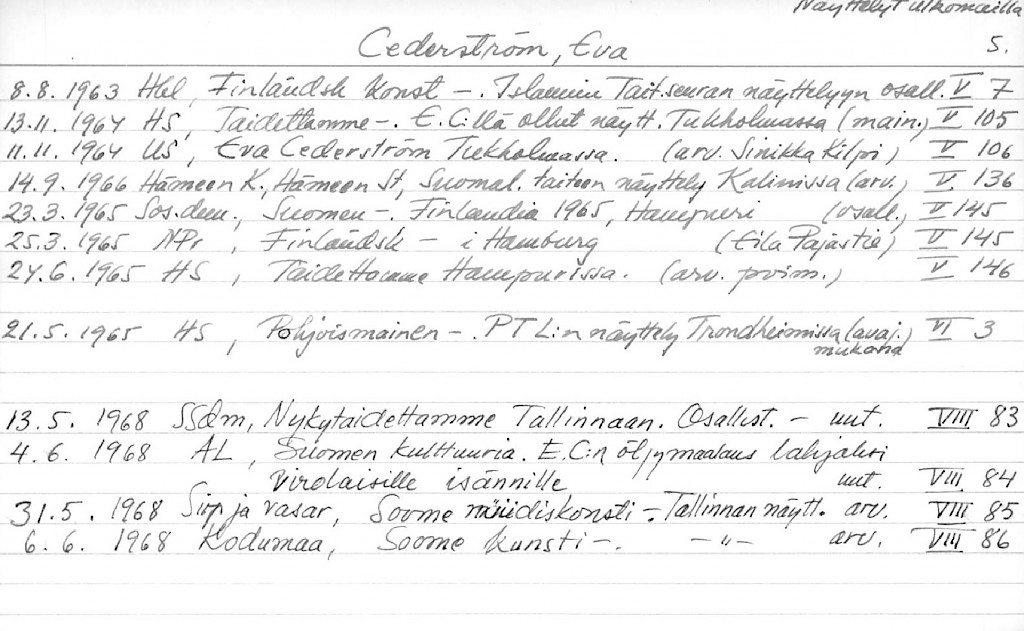 Näyttelyt ulkomailla
Cederström, Eva 5.
8.8. 1963 Hbl, Finländsk konst –. Islannin Tait.seuran näyttelyyn osall. V 7
13.11. 1964 HS, Taidettamme –. E.C:llä ollut näytt. Tukholmassa (main.) V 105
11.11. 1964 US, Eva Cederström Tukholmassa. (arv. Sinikka Kilpi) V 106
14.9. 1966 Hämeen K., Hämeen St, Suomal. taiteen näyttely Kalinissa (arv.) V 136
23.3. 1965 Sos.dem., Suomen –. Finlandia 1965, Hampuri (osall.) V 145
25.3. 1965 NPr, Finländsk – i Hamburg (Eila Pajastie) V 145
24.6. 1965 HS, Taidettamme Hampurissa. (arv. poim.) V 146
21.5. 1965 HS, Pohjoismainen –. PTL:n näyttely Trondheimissa (avaj.) VI 3
mukana
13.5. 1968 SSdm, Nykytaidettamme Tallinnaan. Osallist. – uut. VIII 83
4.6. 1968 AL, Suomen kulttuuria. E.C:n öljymaalaus lahjaksi
virolaisille isännille uut. VIII 84
31.5. 1968 Sirp ja vasar, Soome – Tallinnan näytt. arv. VIII 85
6.6. 1968 Kodumaa, Soome kunsti –. –"– arv. VIII 86